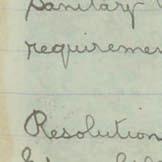 sanitary
requiremen
Resolution